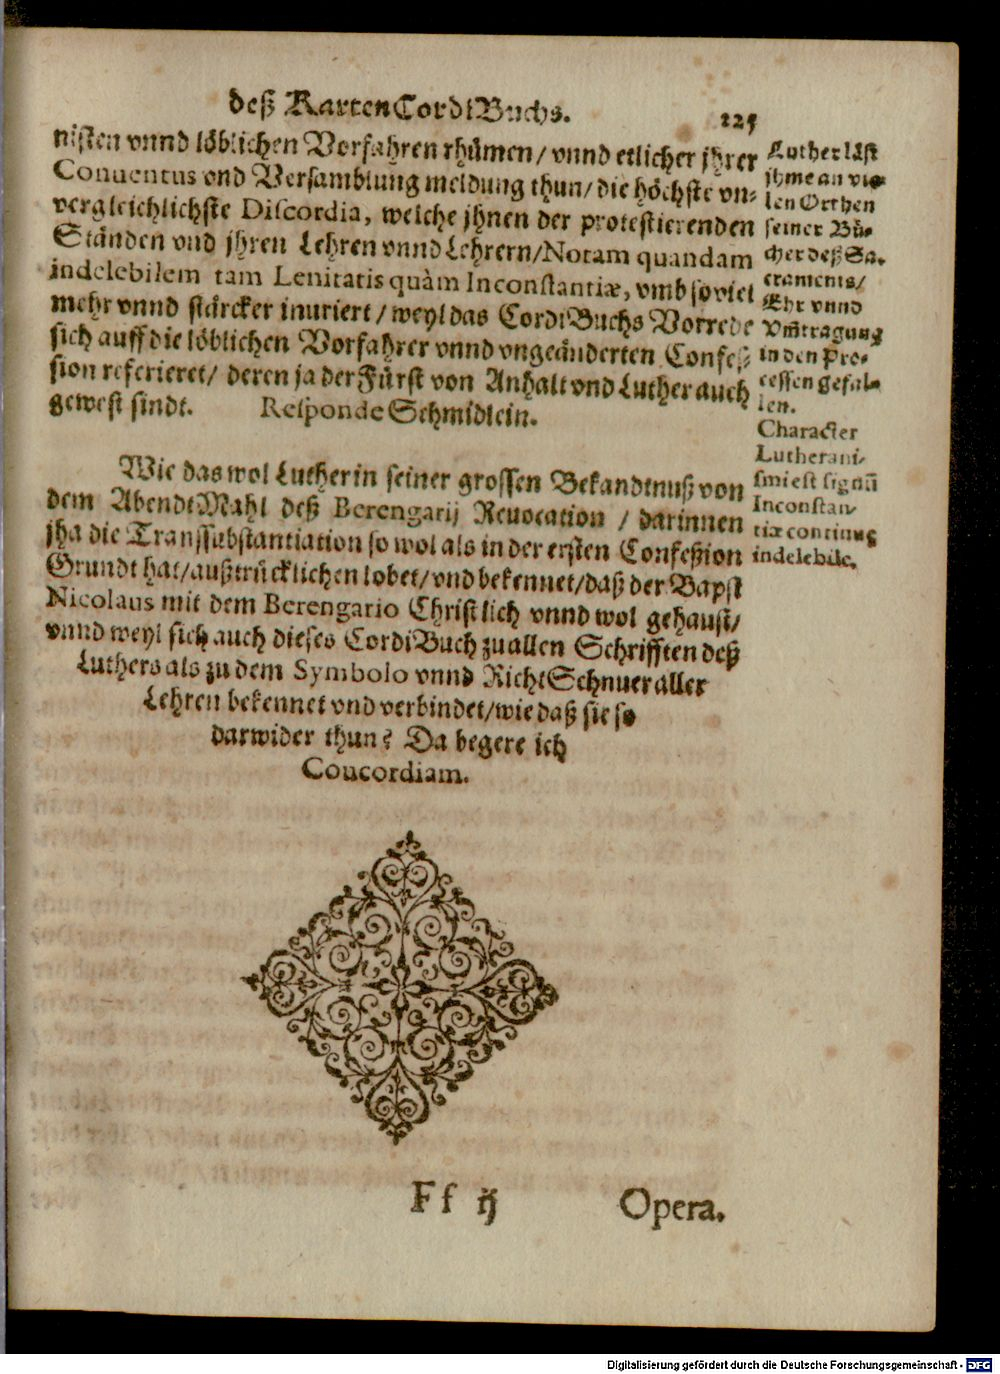 deß KartenCordiBuchs. 225
nisten vnnd löblichen Vorfahren rhümen/ vnnd etlicher jhrer
Conuentus vnd Versamblung meldung thun/ die höchste vn-
vergleichlichste Discordia, welche jhnen der protestierenden
Ständen vnd jhren Lehren vnnd Lehrern/ Notam quandam
indelebilem tam Lenitatis quàm Inconstantiæ, vmb soviel
mehr vnnd stärcker inuriert/ weyl das CordiBuchs Vorrede
sich auff die löblichen Vorfahrer vnnd vngeänderten Confes-
sion referieret/ deren ja der Fürst von Anhalt vnd Luther auch
gewest sindt. Responde Schmidlein.
Luther läst
jhme an vie-
len Orthen
seiner Bü-
cher deß Sa-
craments/
Ehr vnnd
Vmtragung
in den Pro-
cessen gefal-
len.
Character
Lutherani-
smi est signū
Inconstan-
tiæ continuę
indelebile.
Wie das wol Luther in seiner grossen Bekandtnuß von
dem AbendtMahl deß Berengarij Reuocation / darinnen
jha die Transsubstantiation so wol als in der ersten Confeßion
Grundt hat/ außtrücklichen lobet/ vnd bekennet/ daß der Bapst
Nicolaus mit dem Berengario Christlich vnnd wol gehaust/
vnnd weyl sich auch dieses CordiBuch zu allen Schrifften deß
Luthers als zu dem Symbolo vnnd RichtSchnuer aller
Lehren bekennet vnd verbindet/ wie daß sie so
darwider thun? Da begere ich
Coucordiam.
Ff ij Opera.
Digitalisierung gefördert durch die Deutsche Forschungsgemeinschaft - DFG